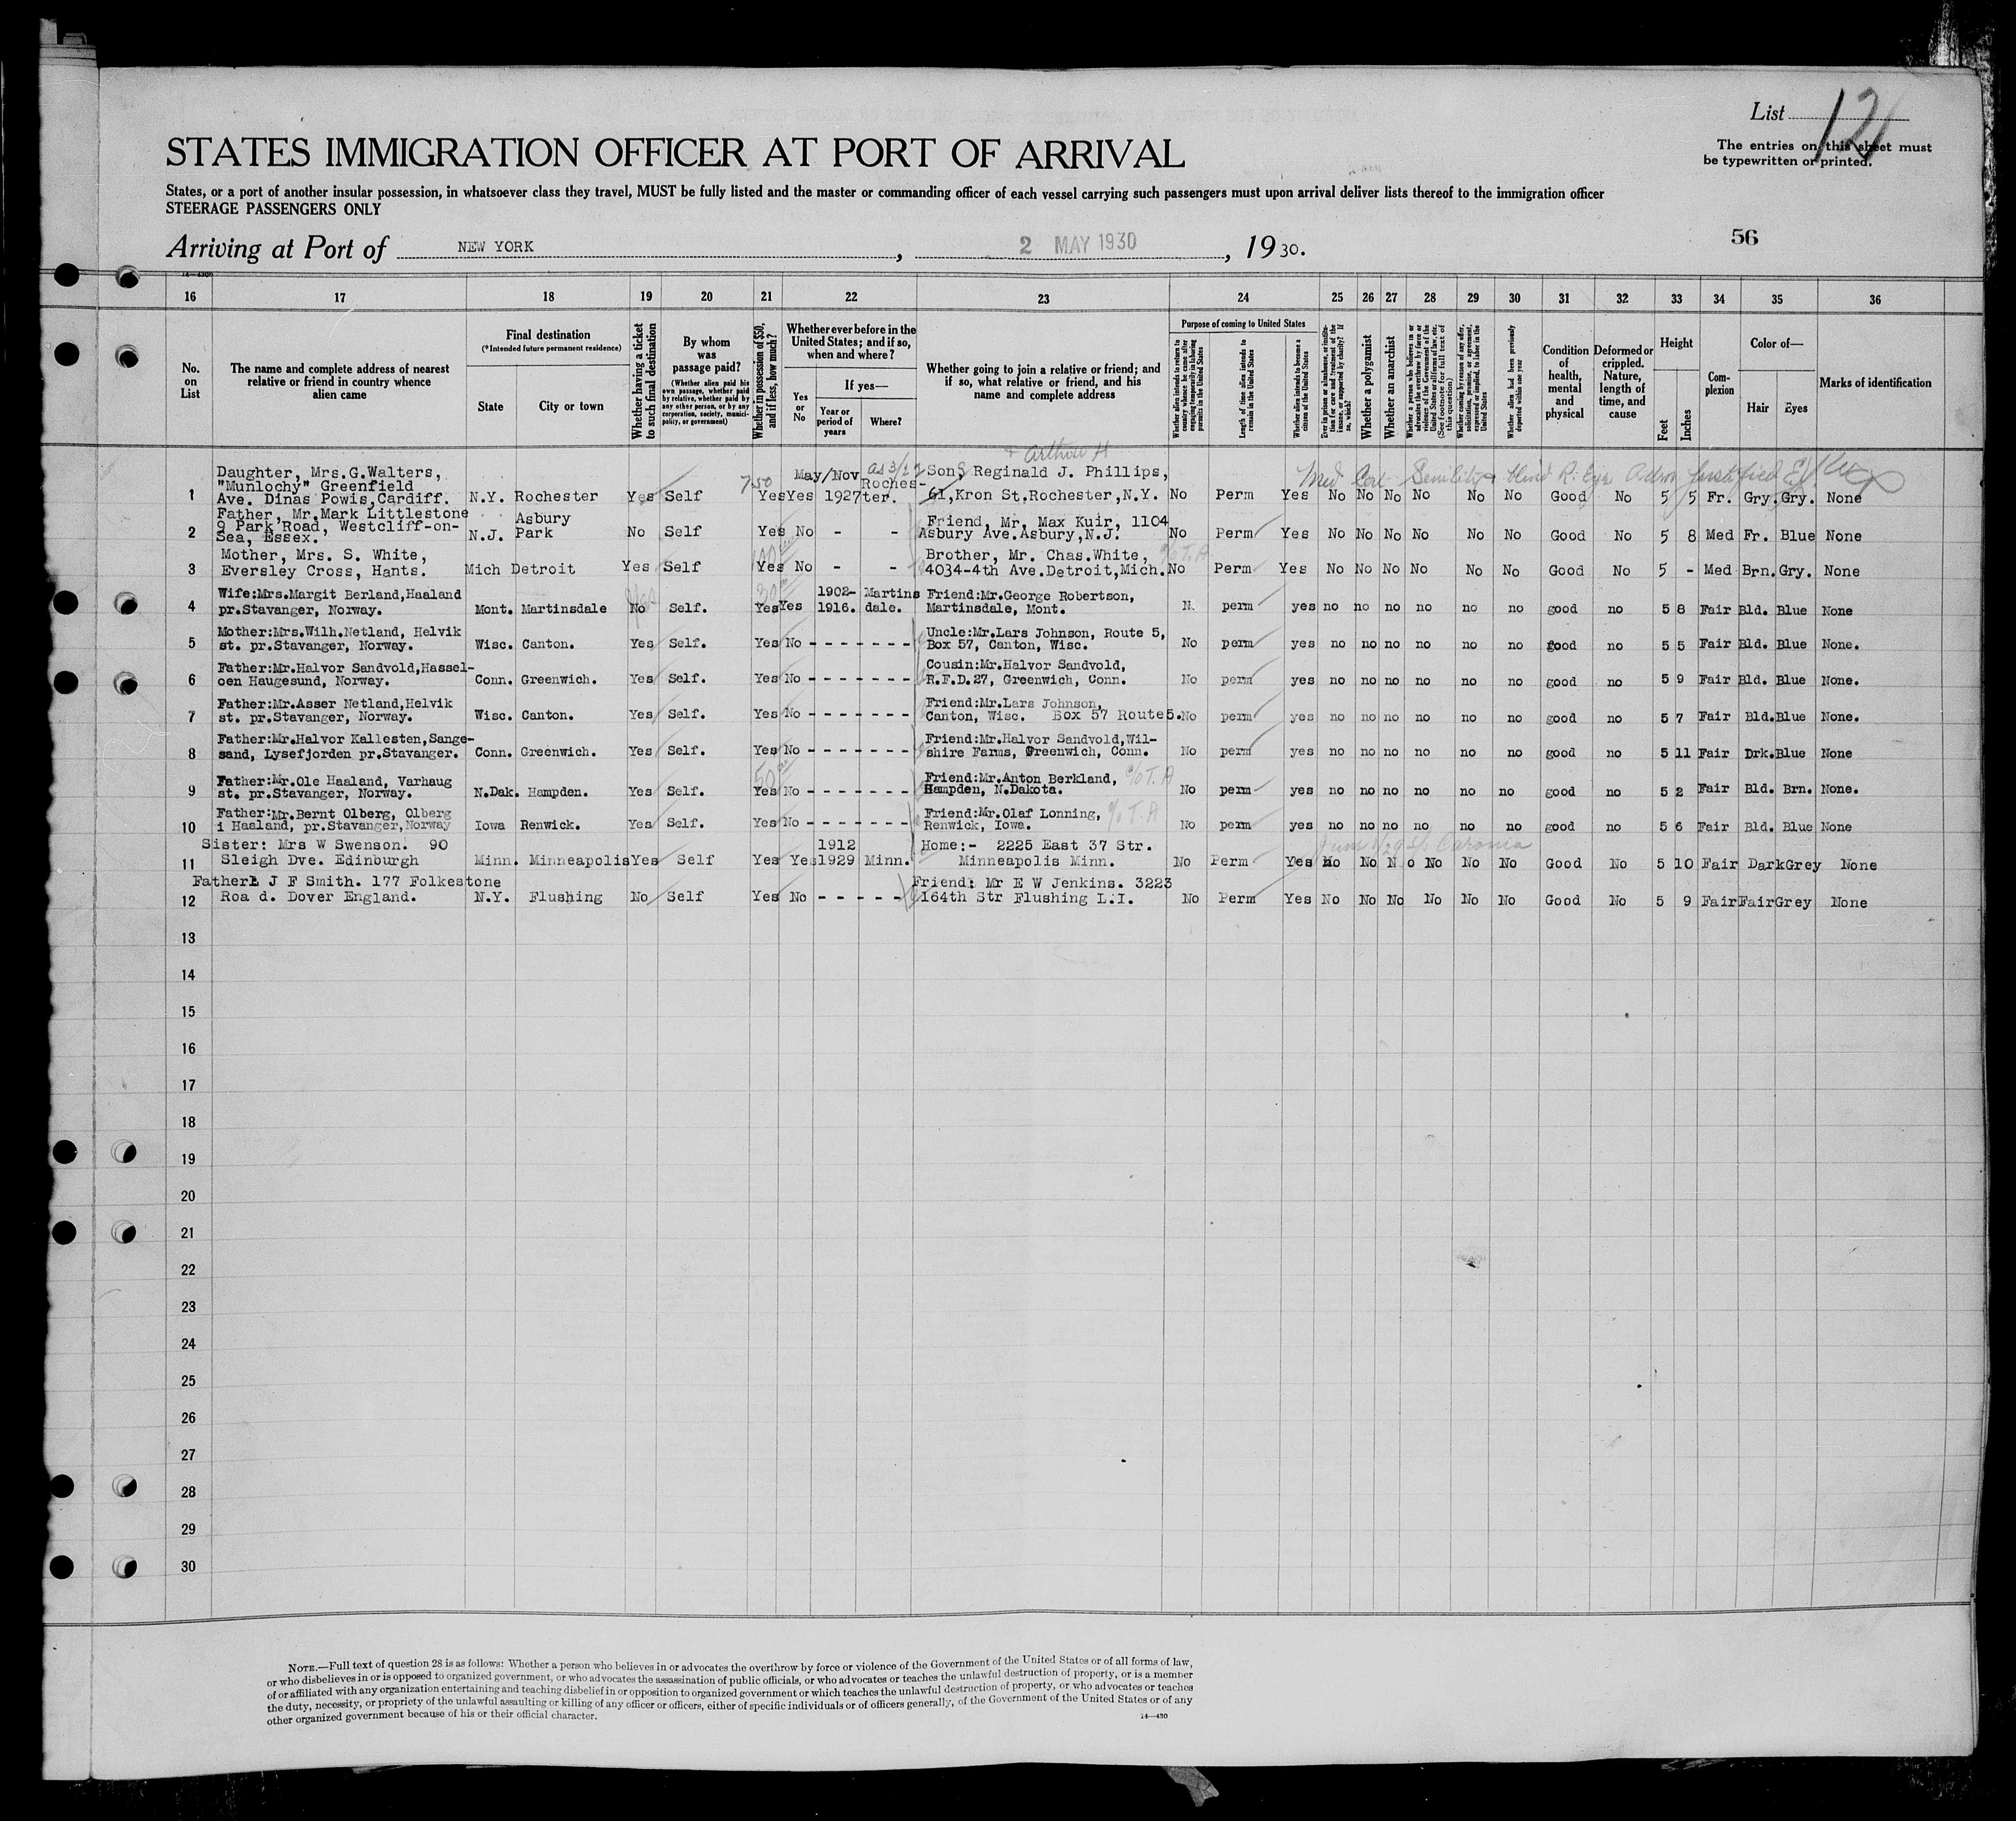 List 12
STATES IMMIGRATION OFFICER AT PORT OF ARRIVAL
The entries on this sheet must
be typewritten or printed.
States, or a port of another insular possession, in whatsoever class they travel, MUST be fully listed and the master or commanding officer of each vessel carrying such passengers must upon arrival deliver lists thereof to the immigration officer
STEERAGE PASSENGERS ONLY
Arriving at Port of NEW YORK, 2 MAY 1930, 1930.
56
14—430
16 17 18 19 20 21 22 23 24 25 26 27 28 29 30 31 32 33 34 35 36
No. on List
The name and complete address of nearest relative or friend in country whence alien came
Final destination
(*Intended future permanent residence)
State City or town
Whether having a ticket to such final destination
By whom was passage paid?
(Whether alien paid his own passage, whether paid by relative, whether paid by any other person, or by any corporation, society, municipality, or government)
Whether in possession of $50, and if less, how much?
Whether ever before in the United States; and if so, when and where?
Yes or No
If yes—
Year or period of years
Where?
Whether going to join a relative or friend; and if so, what relative or friend, and his name and complete address
Purpose of coming to United States
Whether alien intends to return to country whence he came after engaging temporarily in laboring pursuits in the United States
Length of time alien intends to remain in the United States
Whether alien intends to become a citizen of the United States
Ever in prison or almshouse, or institution for care and treatment of the insane, or supported by charity? If so, which?
Whether a polygamist
Whether an anarchist
Whether a person who believes in or advocates the overthrow by force or violence of the Government of the United States or all forms of law, etc. (See footnote for full text of this question)
Whether coming by reason of any offer, solicitation, promise, or agreement, expressed or implied, to labor in the United States
Whether alien had been previously deported within one year
Condition of health, mental and physical
Deformed or crippled. Nature, length of time, and cause
Height
Feet Inches
Complexion
Color of—
Hair Eyes
Marks of identification
+ Arthur H
Med Cert Senility + blind R. Eye Adm
1 Daughter, Mrs.G.Walters, "Munlochy" Greenfield Ave. Dinas Powis,Cardiff. N.Y. Rochester Yes Self 750 Yes Yes May/Nov 1927 Rochester. Son, Reginald J. Phillips, 61,Kron St,Rochester,N.Y. No Perm Yes No No No No No No Good No 5 5 Fr. Gry. Gry. None
2 Father, Mr.Mark Littlestone 9 Park Road, Westcliff-on-Sea, Essex. N.J. Asbury Park No Self Yes No - - Friend, Mr. Max Kuir, 1104 Asbury Ave.Asbury,N.J. No Perm Yes No No No No No No Good No 5 8 Med Fr. Blue None
3 Mother, Mrs. S. White, Eversley Cross, Hants. Mich Detroit Yes Self 100 Yes No - - Brother, Mr. Chas.White, c/o T.A 4034-4th Ave.Detroit,Mich. No Perm Yes No No No No No No Good No 5 - Med Brn. Gry. None
4 Wife:Mrs.Margit Berland,Haaland pr.Stavanger, Norway. Mont. Martinsdale No Yes Self. Yes Yes 1902-1916. Martinsdale. Friend:Mr.George Robertson, Martinsdale, Mont. N. perm yes no no no no no no good no 5 8 Fair Bld. Blue None
5 Mother:Mrs.Wilh.Netland, Helvik st. pr.Stavanger, Norway. Wisc. Canton. Yes Self. Yes No - - - - - - - Uncle:Mr.Lars Johnson, Route 5, Box 57, Canton, Wisc. No perm yes no no no no no no good no 5 5 Fair Bld. Blue None.
6 Father:Mr.Halvor Sandvold,Hasseloen Haugesund, Norway. Conn. Greenwich. Yes Self. Yes No - - - - - - - Cousin:Mr.Halvor Sandvold, R.F.D.27, Greenwich, Conn. No perm yes no no no no no no good no 5 9 Fair Bld. Blue None.
7 Father:Mr.Asser Netland,Helvik st. pr.Stavanger, Norway. Wisc. Canton. Yes Self. Yes No - - - - - - - Friend:Mr.Lars Johnson, Canton, Wisc. Box 57 Route5. No perm yes no no no no no no good no 5 7 Fair Bld. Blue None.
8 Father:Mr.Halvor Kallesten,Sangesand, Lysefjorden pr.Stavanger. Conn. Greenwich. Yes Self. Yes No - - - - - - - Friend:Mr.Halvor Sandvold,Wilshire Farms, Greenwich, Conn. No perm yes no no no no no no good no 5 11 Fair Drk. Blue None
9 Father:Mr.Ole Haaland, Varhaug st. pr.Stavanger, Norway. N.Dak. Hampden. Yes Self. 50 Yes No - - - - - - - Friend:Mr.Anton Berkland, c/o T.A Hampden, N.Dakota. No perm yes no no no no no no good no 5 2 Fair Bld. Brn. None.
10 Father:Mr.Bernt Olberg, Olberg i Haaland, pr.Stavanger,Norway Iowa Renwick. Yes Self. Yes No - - - - - - - Friend:Mr.Olaf Lonning, c/o T.A Renwick, Iowa. No perm yes no no no no no no good no 5 6 Fair Bld. Blue None
11 Sister: Mrs W Swenson. 90 Sleigh Dve. Edinburgh Minn. Minneapolis Yes Self Yes Yes 1912 1929 Minn. Home:- 2225 East 37 Str. Minneapolis Minn. No Perm Yes No No No No No No Good No 5 10 Fair Dark Grey None
12 Father: J F Smith. 177 Folkestone Roa d. Dover England. N.Y. Flushing No Self Yes No - - - - - Friend: Mr E W Jenkins. 3223 164th Str Flushing L.I. No Perm Yes No No No No No No Good No 5 9 Fair Fair Grey None
13
14
15
16
17
18
19
20
21
22
23
24
25
26
27
28
29
30
NOTE.—Full text of question 28 is as follows: Whether a person who believes in or advocates the overthrow by force or violence of the Government of the United States or of all forms of law,
or who disbelieves in or is opposed to organized government, or who advocates the assassination of public officials, or who advocates or teaches the unlawful destruction of property, or is a member
of or affiliated with any organization entertaining and teaching disbelief in or opposition to organized government or which teaches the unlawful destruction of property, or who advocates or teaches
the duty, necessity, or propriety of the unlawful assaulting or killing of any officer or officers, either of specific individuals or of officers generally, of the Government of the United States or of any
other organized government because of his or their official character.
14—430